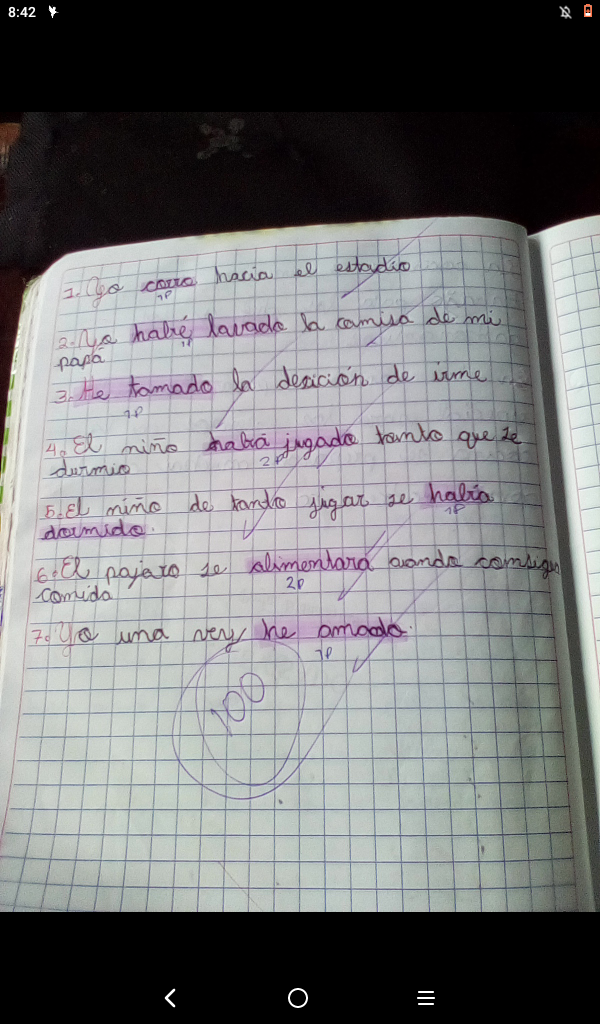 8:42
1. Yo corro hacia el estadio
1P
2. Yo habré lavado la camisa de mi
1P
papá
3. He tomado la desición de irme
1P
4. El niño habrá jugado tanto que se
2P
durmio
5. El niño de tanto jugar se había
1P
dormido.
6. El pajaro se alimentara cuando consigu
2P
Comida
7. Yo una vez he amado.
1P
100